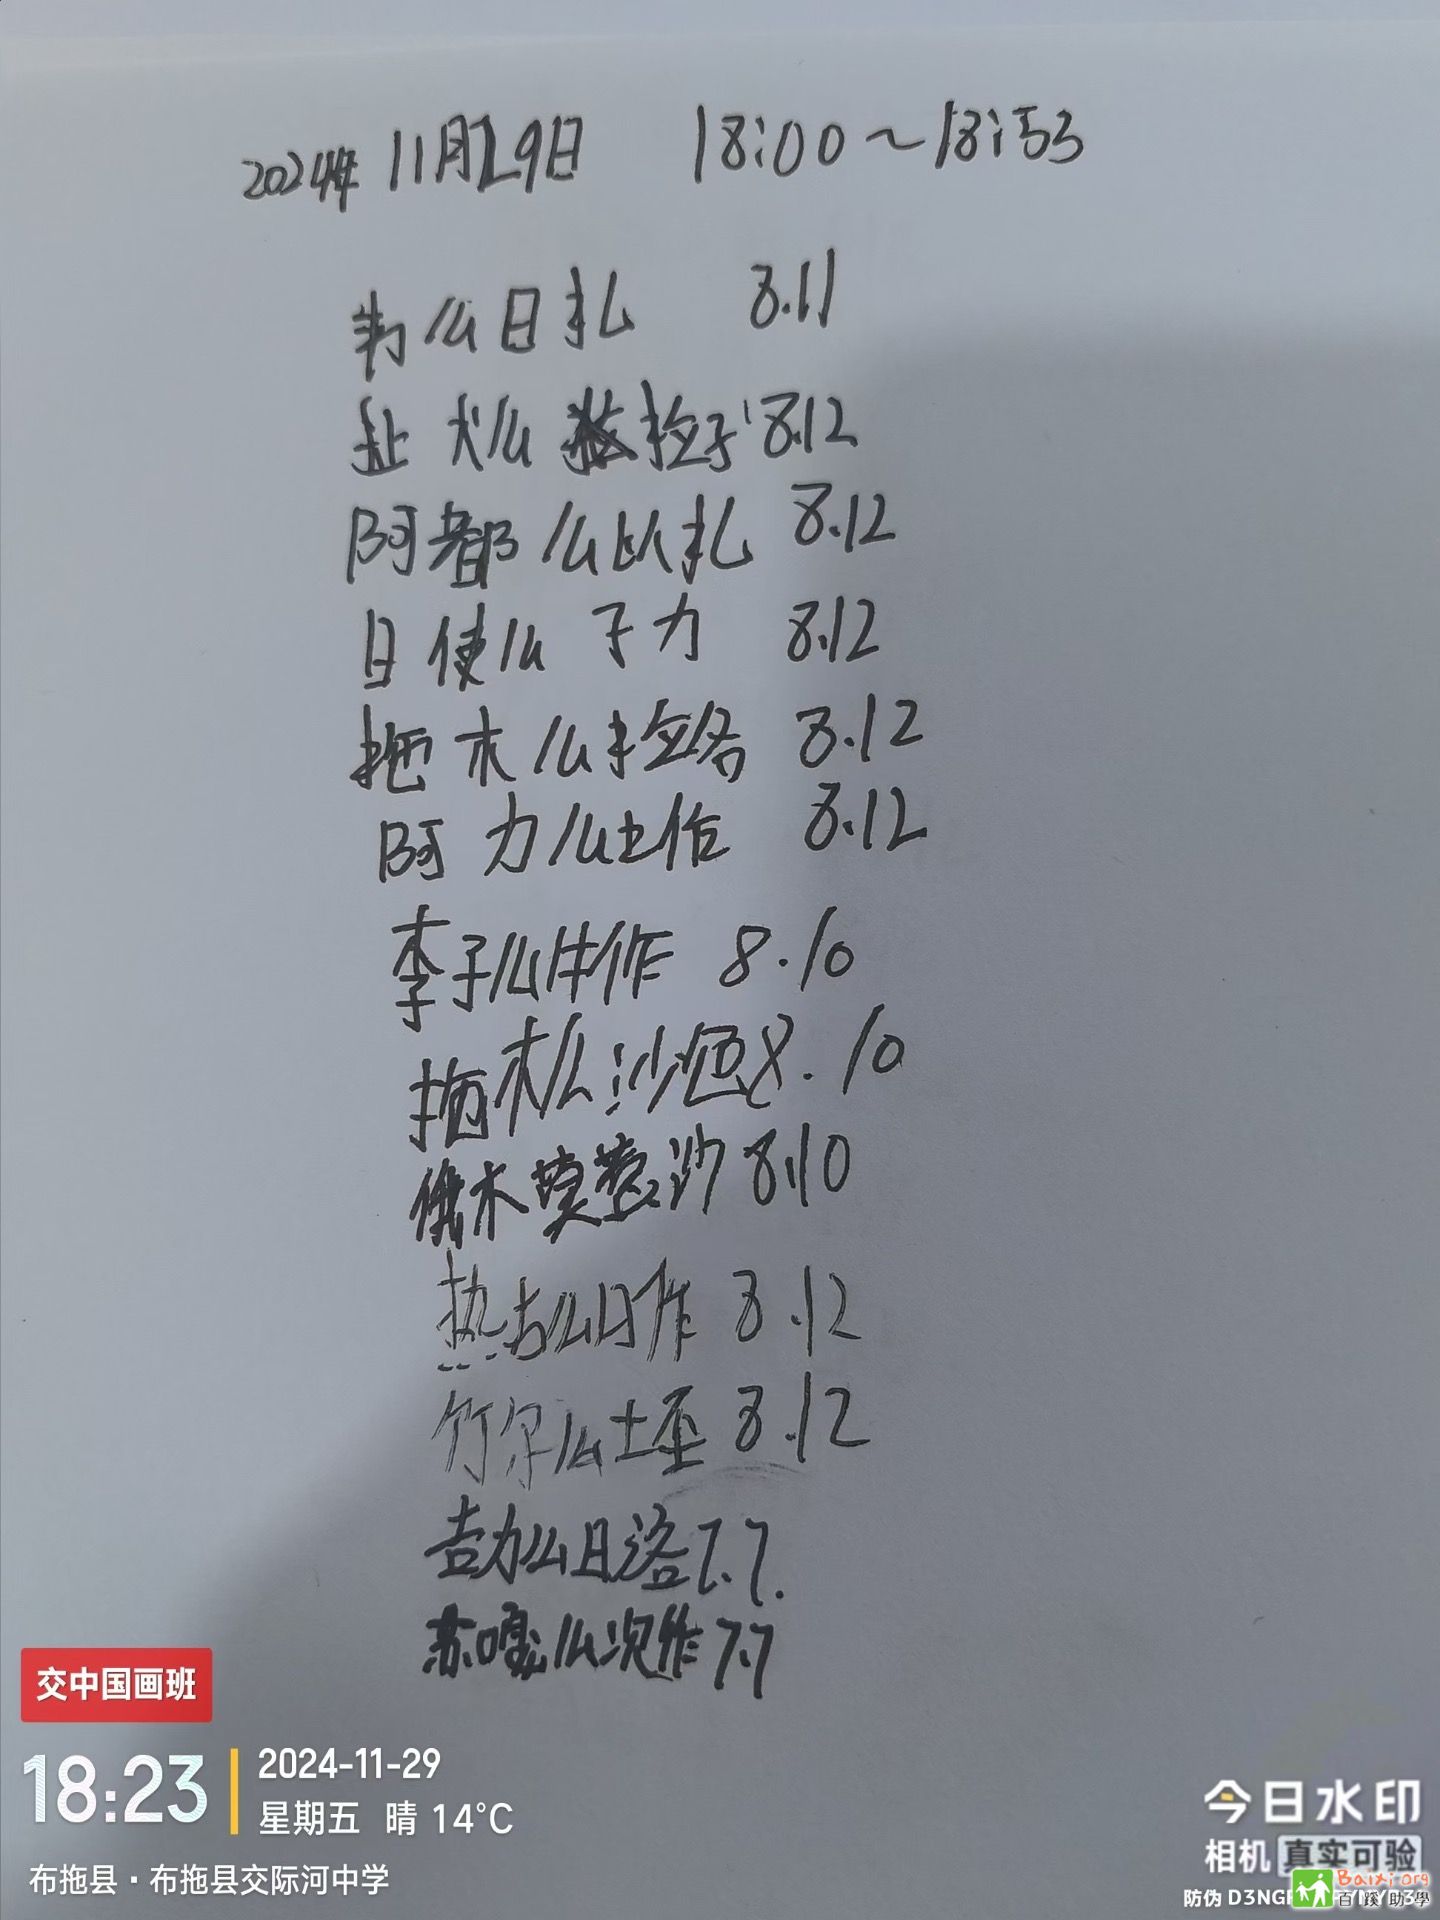 2024年 11月29日 18:00～18:53
么日扎 8.11
么 拉子 8.12
阿都么以扎 8.12
日使么子力 8.12
拖木么拉各 8.12
阿力么土作 8.12
李子么牛作 8.10
拖木么沙色 8.10
俄木莫惹沙 8.10
热古么日作 8.12
竹尔么土呷 8.12
吉力么日洛 7.7.
苏嘎么次作 7.7
交中国画班
18:23
2024-11-29
星期五 晴 14°C
布拖县·布拖县交际河中学
今日水印
相机 真实可验
防伪
Baixi.org
百蹊助學